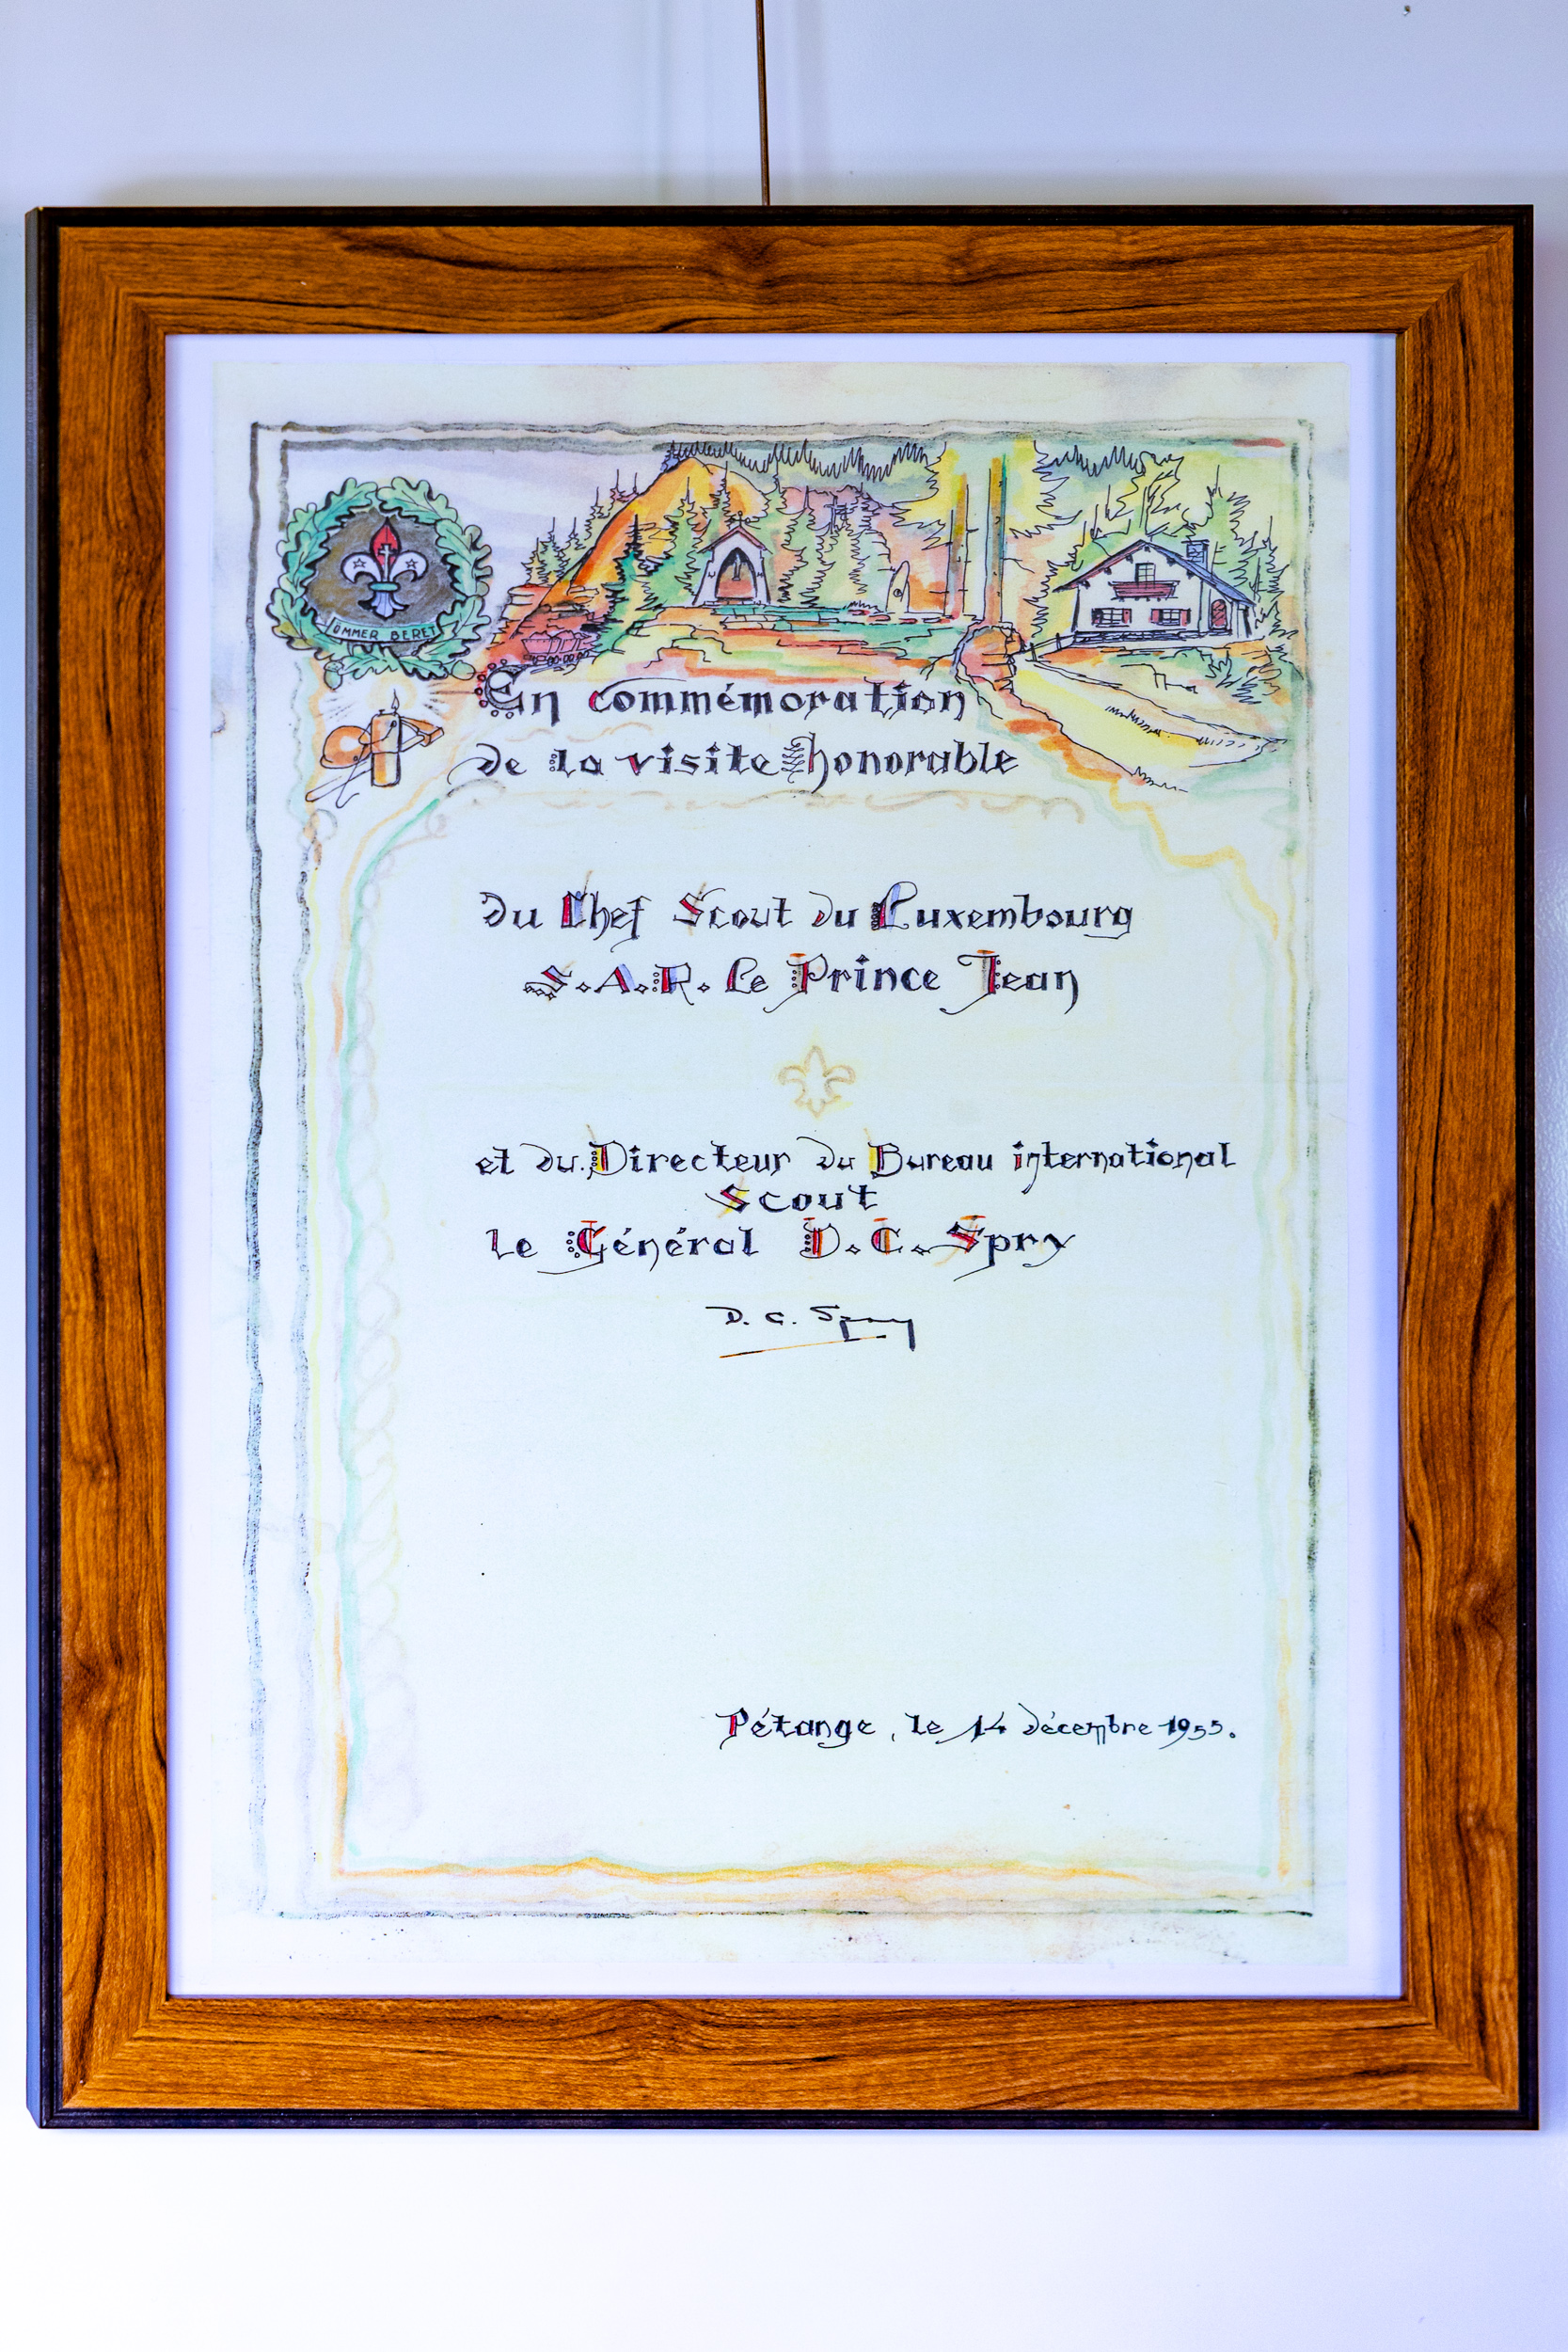 ËMMER BERET
En commémoration
de la visite honorable
du Chef Scout du Luxembourg
S.A.R. le Prince Jean
et du Directeur du Bureau international
Scout
le Général D.C. Spry
D. C. Spry
Pétange, le 14 décembre 1955.